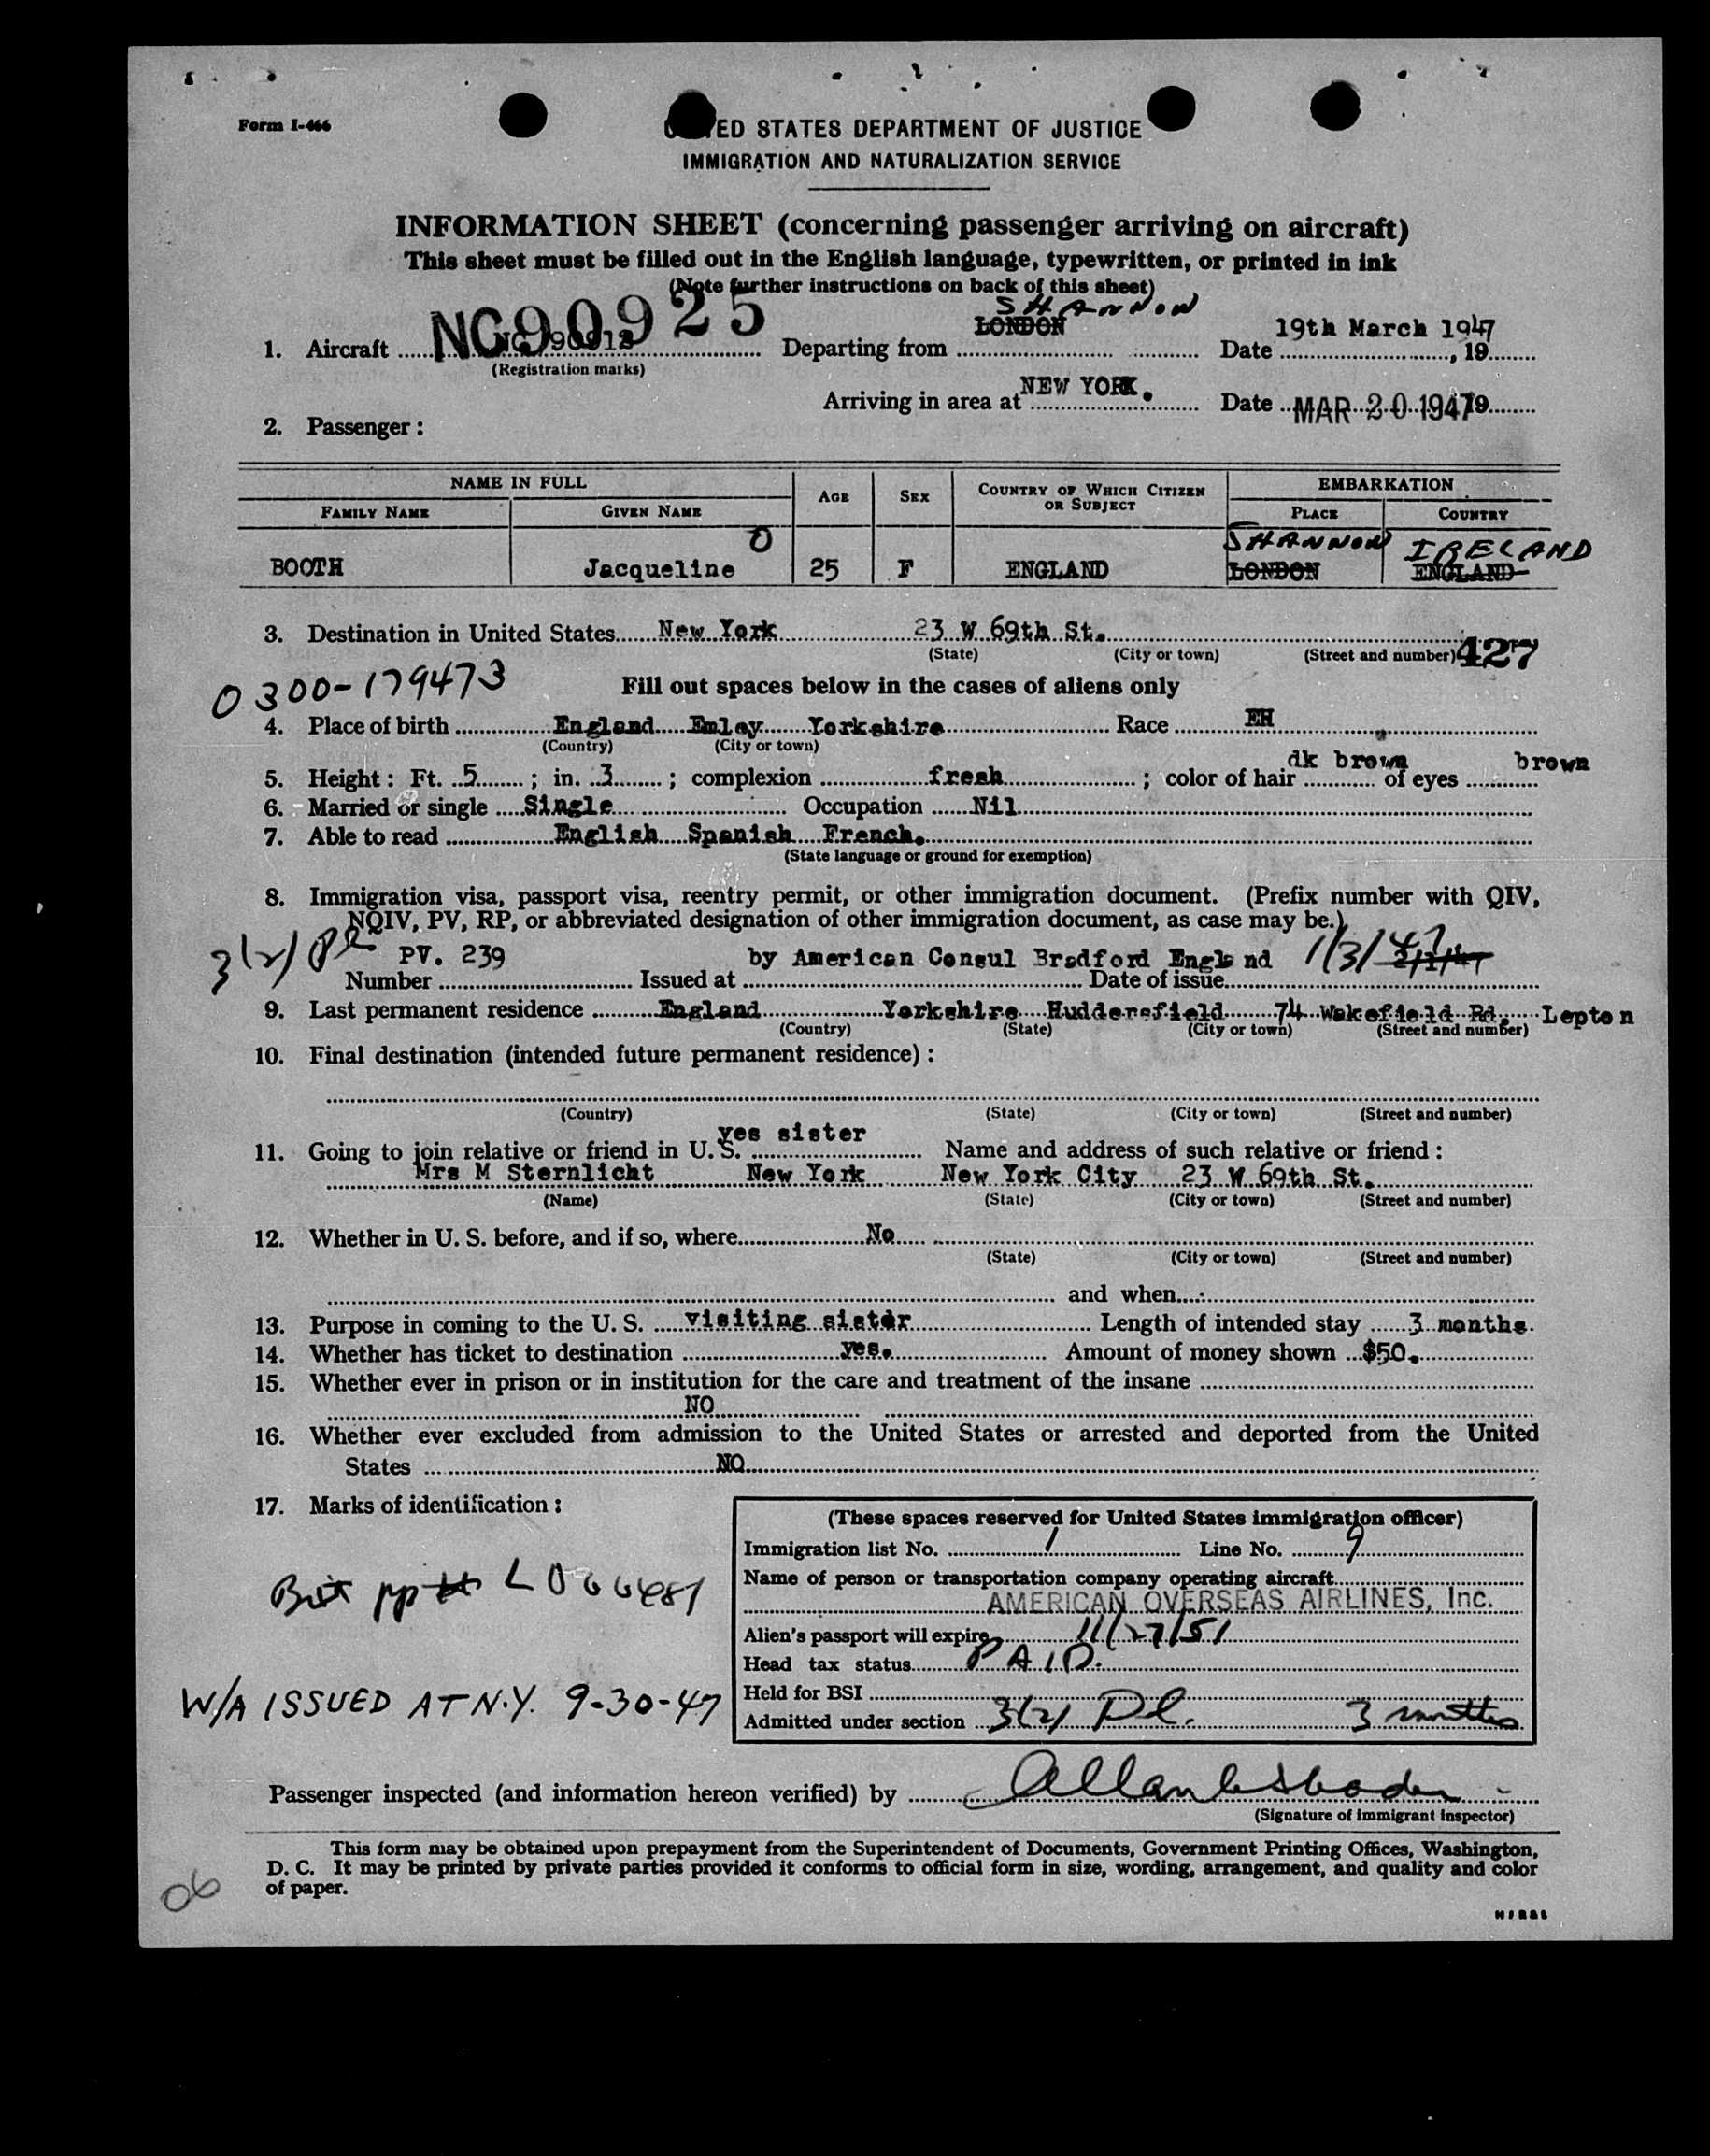 Form I-466
UNITED STATES DEPARTMENT OF JUSTICE
IMMIGRATION AND NATURALIZATION SERVICE
INFORMATION SHEET (concerning passenger arriving on aircraft)
This sheet must be filled out in the English language, typewritten, or printed in ink
(Note further instructions on back of this sheet)
SHANNON
1. Aircraft NC90925 Departing from LONDON Date 19th March 1947, 19
(Registration marks)
Arriving in area at NEW YORK. Date MAR 20 1947 19
2. Passenger:
NAME IN FULL AGE SEX COUNTRY OF WHICH CITIZEN OR SUBJECT EMBARKATION
FAMILY NAME GIVEN NAME PLACE COUNTRY
O SHANNON IRELAND
BOOTH Jacqueline 25 F ENGLAND LONDON ENGLAND
3. Destination in United States New York 23 W 69th St.
(State) (City or town) (Street and number) 427
0300-179473 Fill out spaces below in the cases of aliens only
4. Place of birth England Emley Yorkshire Race EH
(Country) (City or town)
5. Height: Ft. 5; in. 3; complexion fresh; color of hair dk brown of eyes brown
6. Married or single Single Occupation Nil
7. Able to read English Spanish French.
(State language or ground for exemption)
8. Immigration visa, passport visa, reentry permit, or other immigration document. (Prefix number with QIV,
NQIV, PV, RP, or abbreviated designation of other immigration document, as case may be.)
3(2) Pl PV. 239 by American Consul Bradford England 1/3/47
Number Issued at Date of issue
9. Last permanent residence England Yorkshire Huddersfield 74 Wakefield Rd, Lepton
(Country) (State) (City or town) (Street and number)
10. Final destination (intended future permanent residence):
(Country) (State) (City or town) (Street and number)
11. Going to join relative or friend in U. S. yes sister Name and address of such relative or friend:
Mrs M Sternlicht New York New York City 23 W 69th St.
(Name) (State) (City or town) (Street and number)
12. Whether in U. S. before, and if so, where No
(State) (City or town) (Street and number)
and when
13. Purpose in coming to the U. S. visiting sister Length of intended stay 3 months.
14. Whether has ticket to destination yes. Amount of money shown $50.
15. Whether ever in prison or in institution for the care and treatment of the insane
NO
16. Whether ever excluded from admission to the United States or arrested and deported from the United
States NO
17. Marks of identification:
Brit pp L066481
W/A ISSUED AT N.Y. 9-30-47
(These spaces reserved for United States immigration officer)
Immigration list No. 1 Line No. 9
Name of person or transportation company operating aircraft
AMERICAN OVERSEAS AIRLINES, Inc.
Alien's passport will expire 11/27/51
Head tax status PAID.
Held for BSI
Admitted under section 3(2) Pl. 3 months
Passenger inspected (and information hereon verified) by
(Signature of immigrant inspector)
This form may be obtained upon prepayment from the Superintendent of Documents, Government Printing Offices, Washington,
D. C. It may be printed by private parties provided it conforms to official form in size, wording, arrangement, and quality and color
of paper.
06